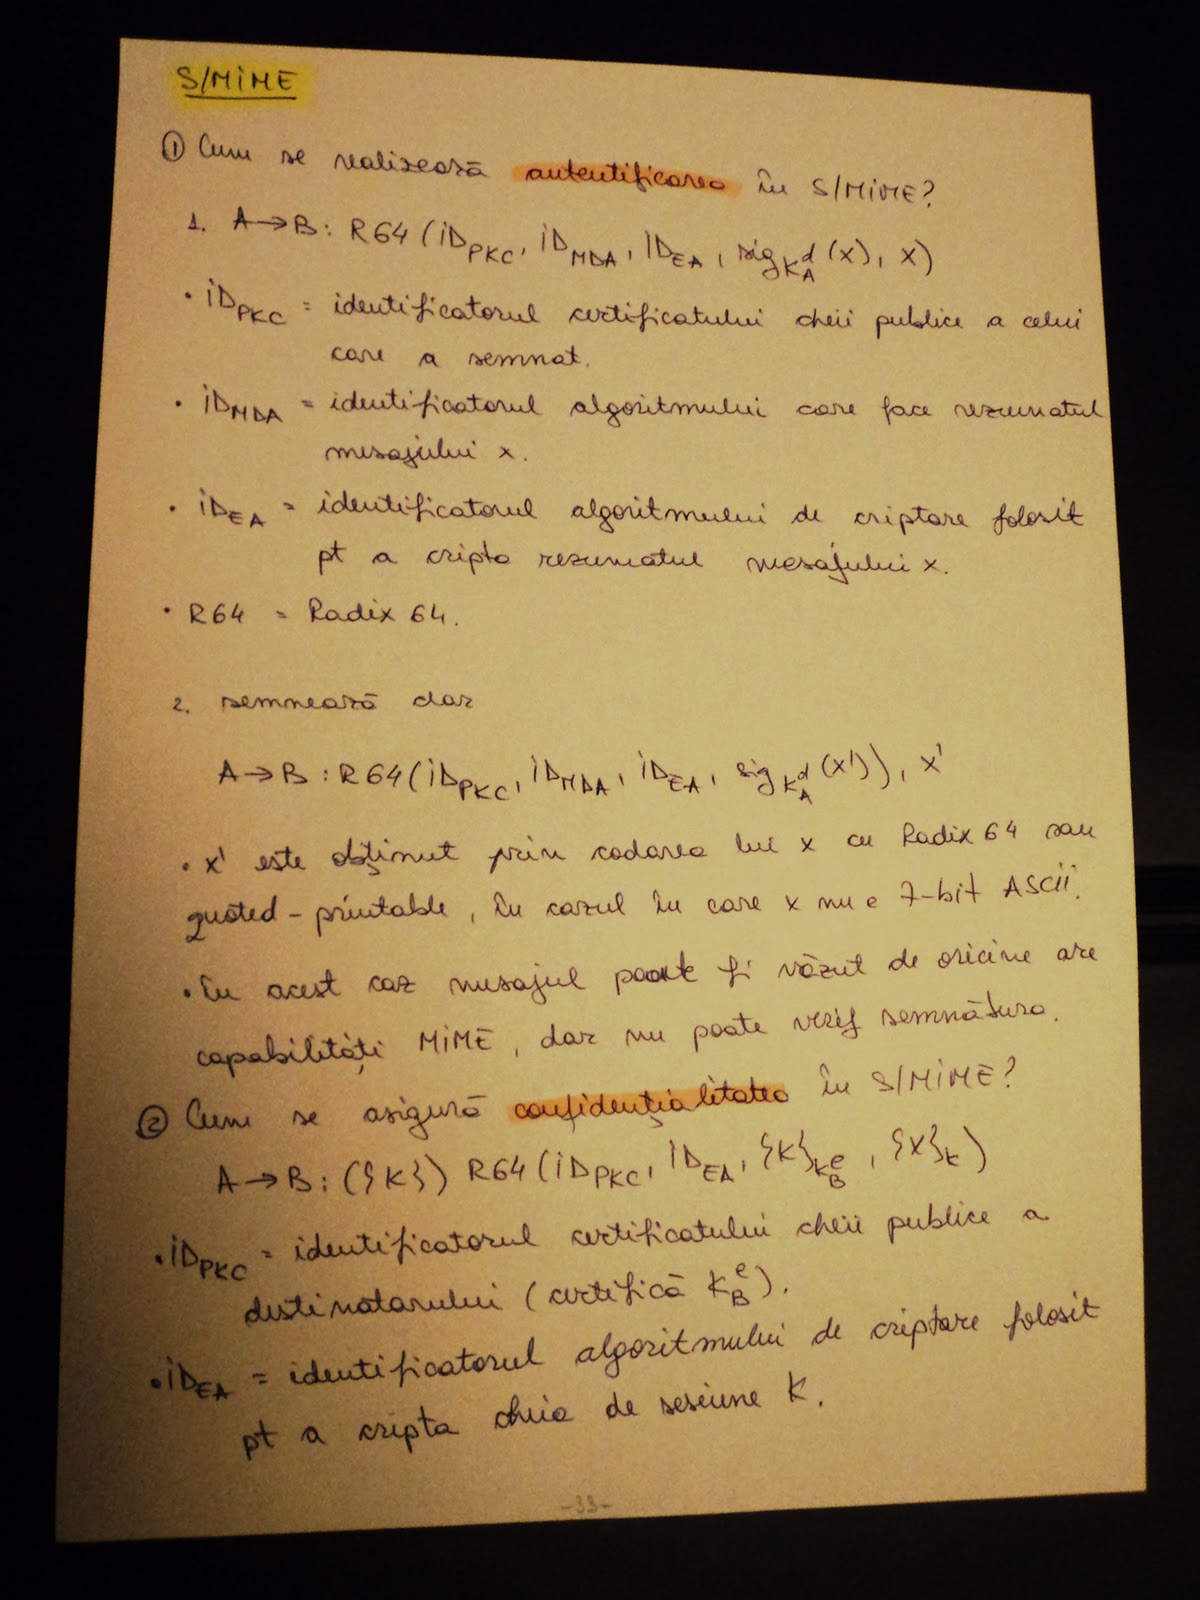 S/MIME
① Cum se realizează autentificarea în S/MIME?
1. A→B: R64 (ID_PKC, ID_MDA, ID_EA, sig_{K_A^d}(x), x)
• ID_PKC = identificatorul certificatului cheii publice a celui
care a semnat.
• ID_MDA = identificatorul algoritmului care face rezumatul
mesajului x.
• ID_EA = identificatorul algoritmului de criptare folosit
pt a cripta rezumatul mesajului x.
• R64 = Radix 64.
2. semnează dar
A→B: R64(ID_PKC, ID_MDA, ID_EA, sig_{K_A^d}(x')), x'
• x' este obținut prin codarea lui x cu Radix 64 sau
quoted-printable, în cazul în care x nu e 7-bit ASCII.
• În acest caz mesajul poate fi văzut de oricine are
capabilități MIME, dar nu poate verif semnătura.
② Cum se asigură confidențialitatea în S/MIME?
A→B: ({K}) R64 (ID_PKC, ID_EA, {K}_{K_B^e}, {X}_K)
• ID_PKC = identificatorul certificatului cheii publice a
destinatarului (certifică K_B^e).
• ID_EA = identificatorul algoritmului de criptare folosit
pt a cripta cheia de sesiune K.
-33-